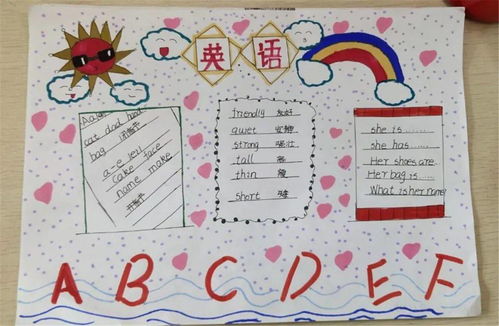 英语
cat dad hand
bag 闭音节
a-e /ei/
cake face
name make
开音节
friendly 友好
quiet 安静
strong 强壮
tall 高
thin 瘦
short 矮
she is......
she has......
Her shoes are.
Her bag is.....
What is her name?
A B C D E F